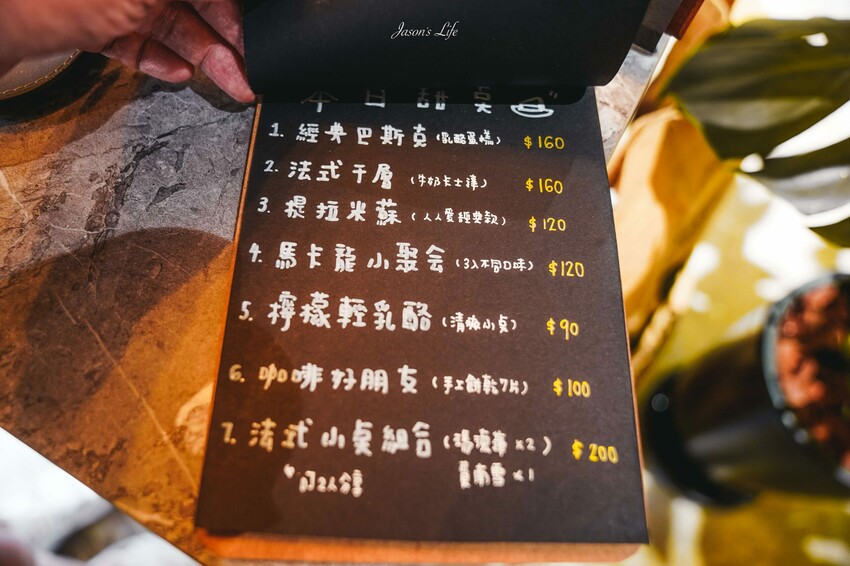 Jason's Life
本日甜桌
1. 經典巴斯克(乳酪蛋糕) $160
2. 法式千層(牛奶卡士達) $160
3. 提拉米蘇(人人愛經典款) $120
4. 馬卡龍小聚会(3入不同口味) $120
5. 檸檬輕乳酪(清爽小桌) $90
6. 咖啡好朋友(手工餅乾7片) $100
7. 法式小桌組合(瑪德蓮x2) $200
可2人分享 費南雪x1